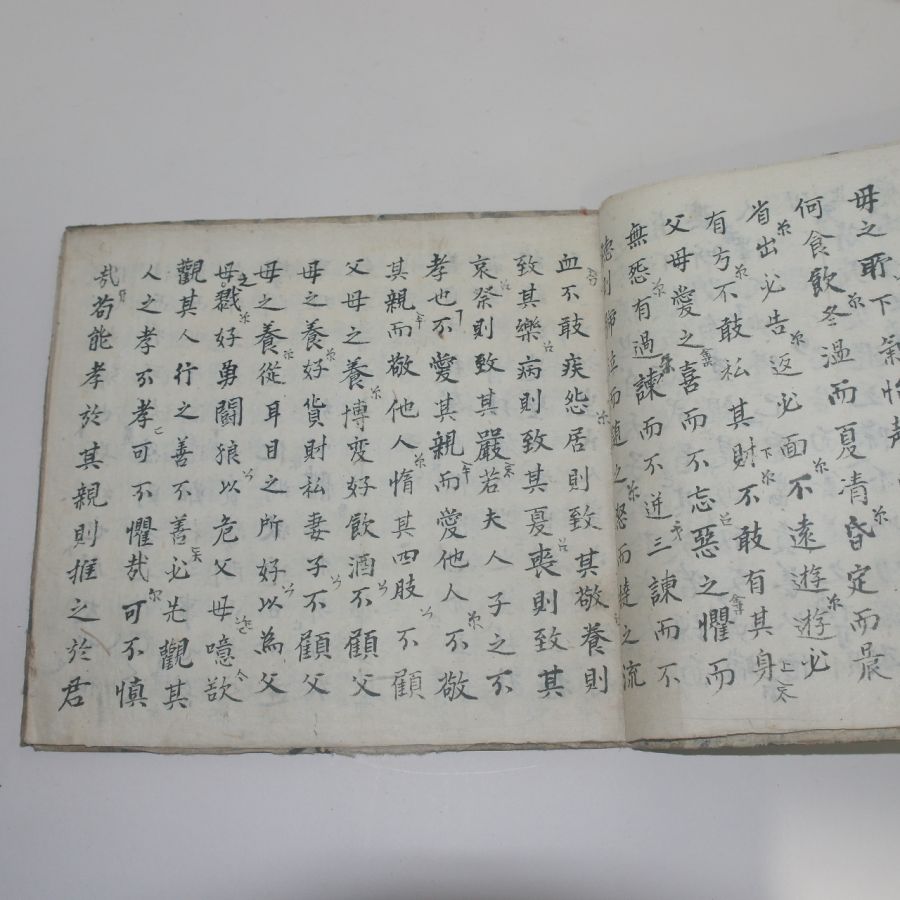 毋之所下氣怡聲
何食飮冬溫而夏清昏定而晨
省出必告返必面不遠遊遊必
有方不敢私其財不敢有其身
父母愛之喜而不忘惡之懼而
無怨有過諫而不逆三諫而不
聽則號泣而隨之怒而撻之流
血不敢疾怨居則致其敬養則
致其樂病則致其憂喪則致其
哀祭則致其嚴若夫人子之不
孝也不愛其親而愛他人不敬
其親而敬他人惰其四肢不顧
父母之養博変好飮酒不顧父
母之養好貨財私妻子不顧父
母之養從耳目之所好以為父
母之戮好勇鬪狼以危父母噫欲
觀其人行之善不善必先觀其
人之孝不孝可不懼哉可不慎
哉苟能孝於其親則推之於君